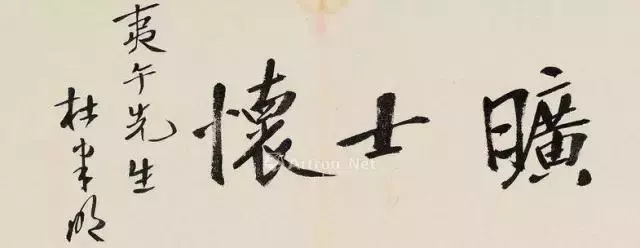 曠士懷
夷午先生
杜聿明
Artron.Net